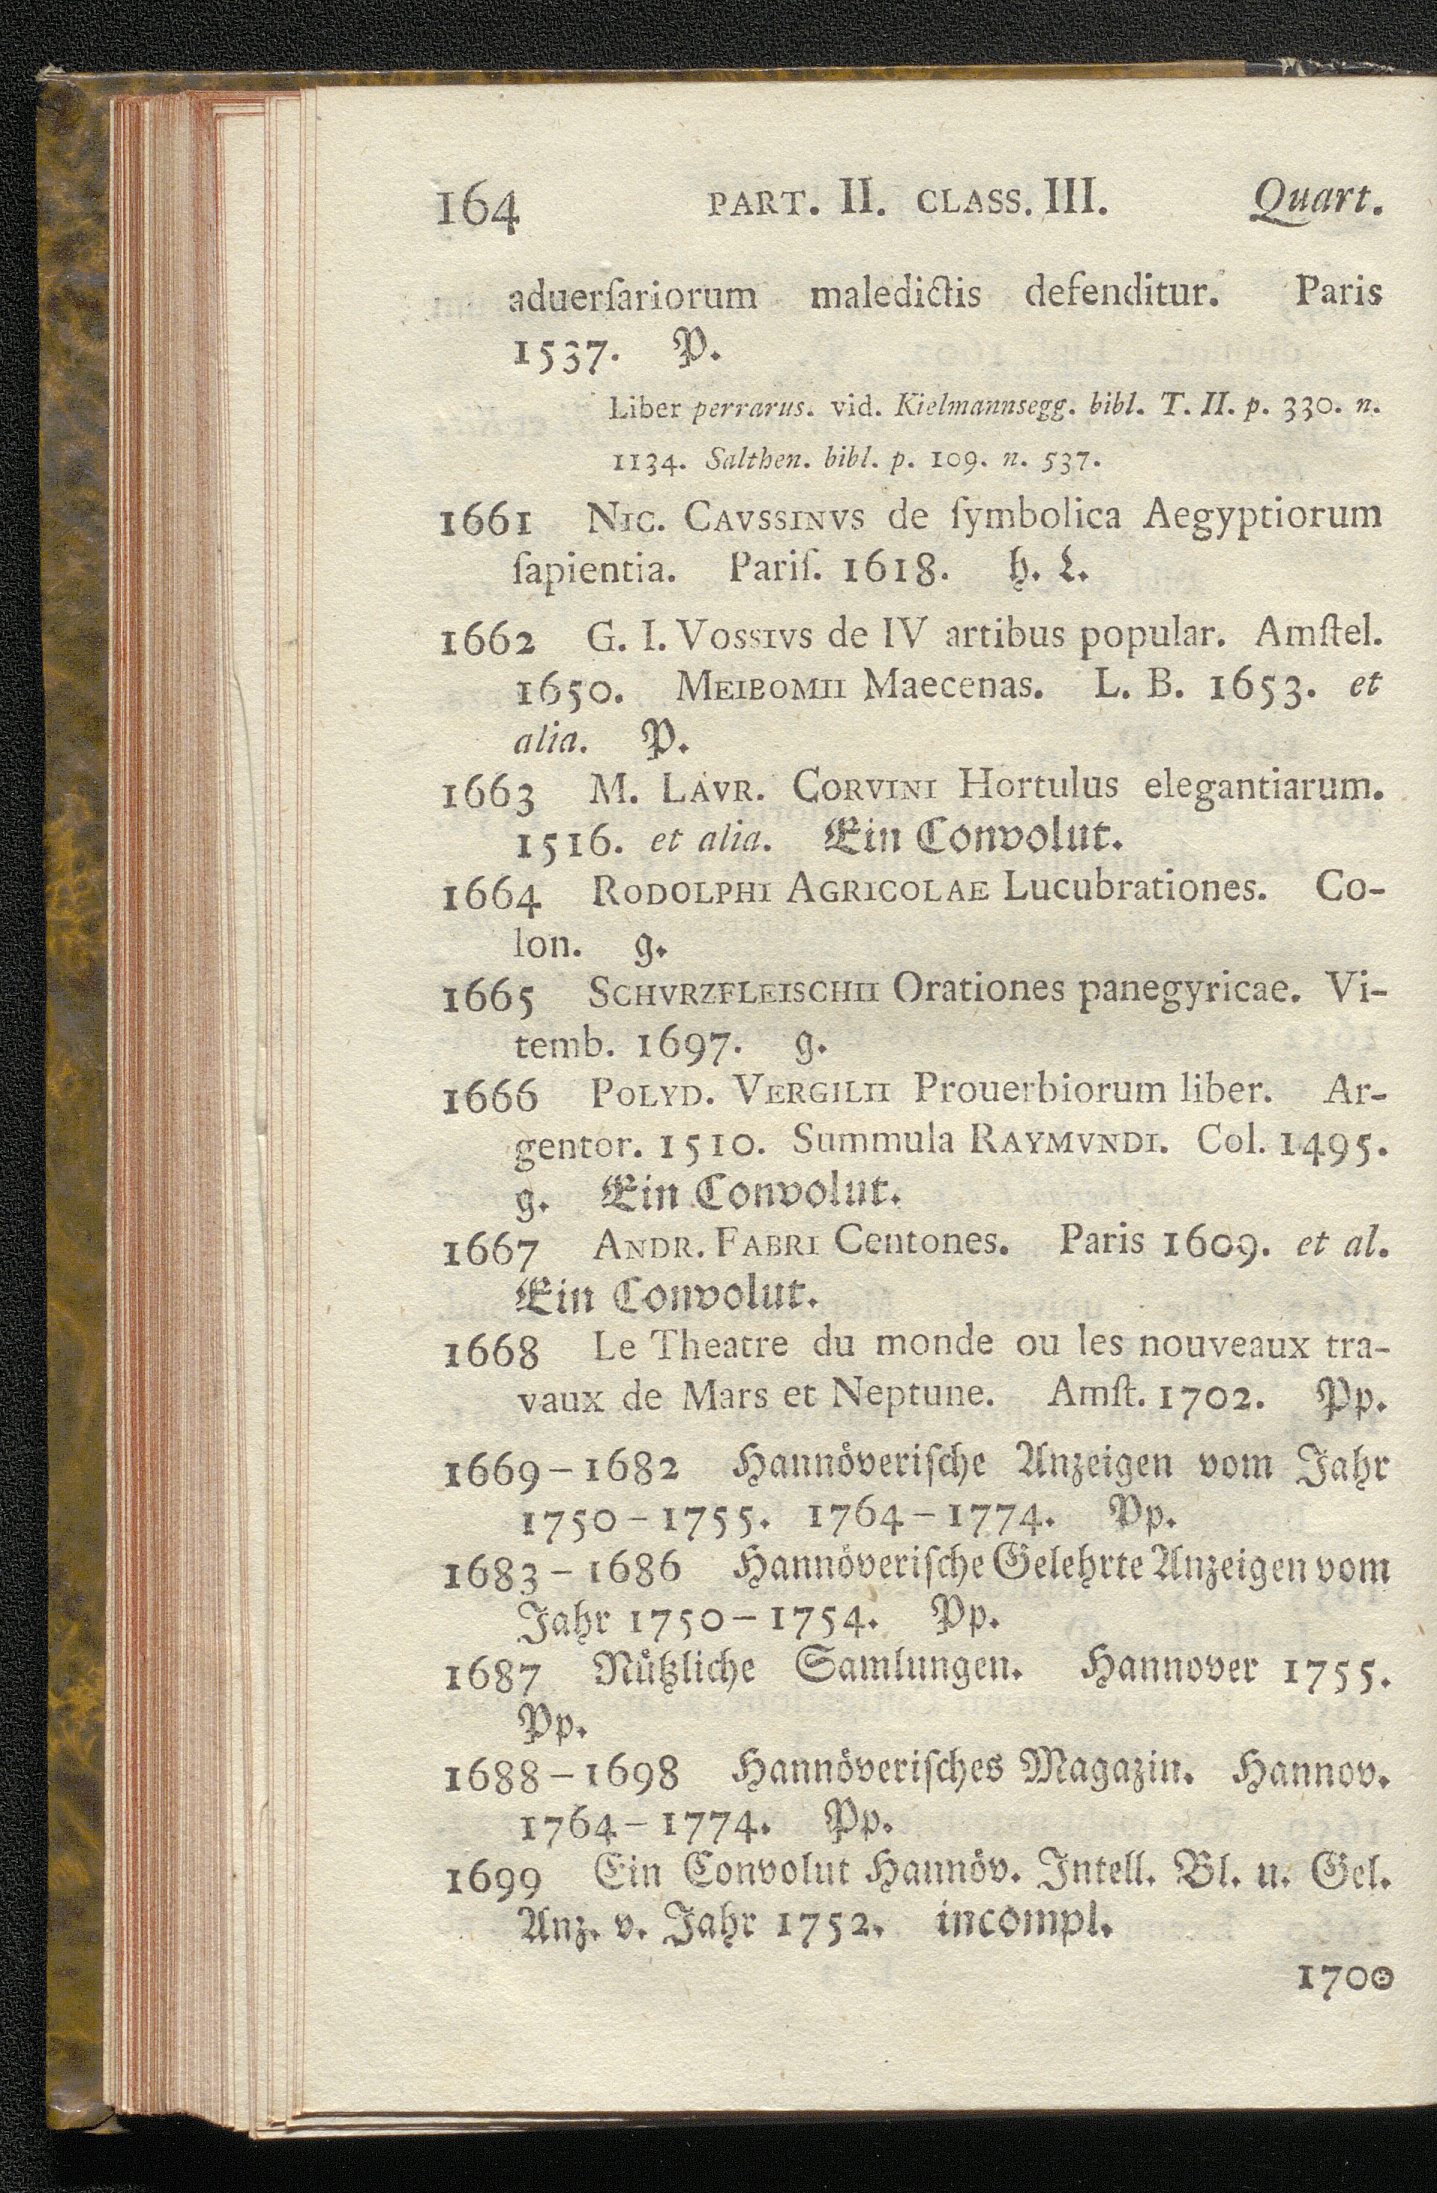 164 PART. II. CLASS. III. Quart.
aduerſariorum maledictis defenditur. Paris
1537. P.
Liber perrarus. vid. Kielmannsegg. bibl. T. II. p. 330. n.
1134. Salthen. bibl. p. 109. n. 537.
1661 NIC. CAVSSINVS de ſymbolica Aegyptiorum
ſapientia. Pariſ. 1618. h. L.
1662 G. I. VOSSIVS de IV artibus popular. Amſtel.
1650. MEIBOMII Maecenas. L. B. 1653. et
alia. P.
1663 M. LAVR. CORVINI Hortulus elegantiarum.
1516. et alia. Ein Convolut.
1664 RODOLPHI AGRICOLAE Lucubrationes. Co-
lon. g.
1665 SCHVRZFLEISCHII Orationes panegyricae. Vi-
temb. 1697. g.
1666 POLYD. VERGILII Prouerbiorum liber. Ar-
gentor. 1510. Summula RAYMVNDI. Col. 1495.
g. Ein Convolut.
1667 ANDR. FABRI Centones. Paris 1609. et al.
Ein Convolut.
1668 Le Theatre du monde ou les nouveaux tra-
vaux de Mars et Neptune. Amſt. 1702. Pp.
1669-1682 Hannöveriſche Anzeigen vom Jahr
1750-1755. 1764-1774. Pp.
1683-1686 Hannöveriſche Gelehrte Anzeigen vom
Jahr 1750-1754. Pp.
1687 Nützliche Samlungen. Hannover 1755.
Pp.
1688-1698 Hannöveriſches Magazin. Hannov.
1764-1774. Pp.
1699 Ein Convolut Hannöv. Intell. Bl. u. Gel.
Anz. v. Jahr 1752. incompl.
1700